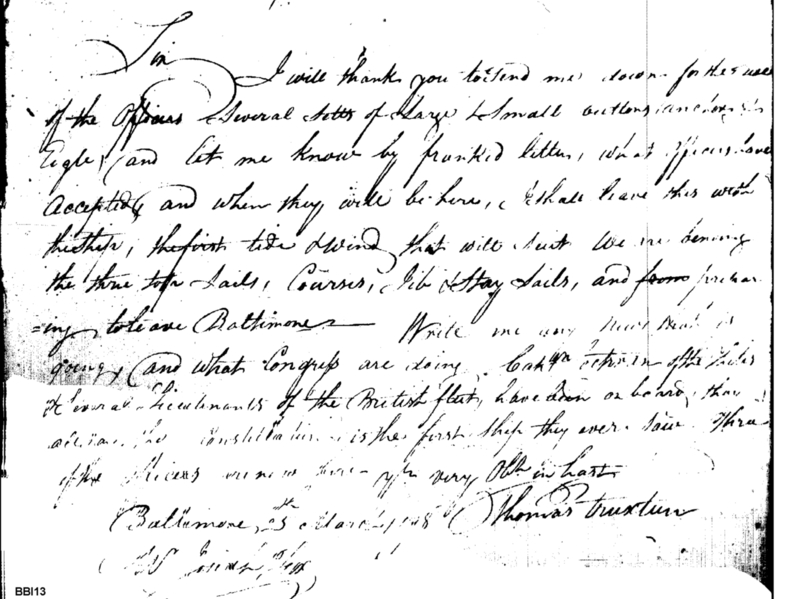 Sir
I will thank you to send me down for the use
of the Officers Several Setts of Large & Small buttons anchor &
Eagle, and let me know by franked letter, what Officers have
accepted, and when they will be here, I shall leave this with
the ship, the first tide & wind, that will suit We are bening
the three top Sails, Courses, Jib & Stay Sails, and from prepar-
=ing to leave Baltimore — Write me any News that is
going, and what Congress are doing. Capt of the
& Several Lieutenants of the British fleet, have been on board, they
the Constellation is the first ship they ever saw. Three
of the Officers are now here — yr very Obt in hast
Baltimore, March Thomas Truxtun
Josiah Fox
BBI13